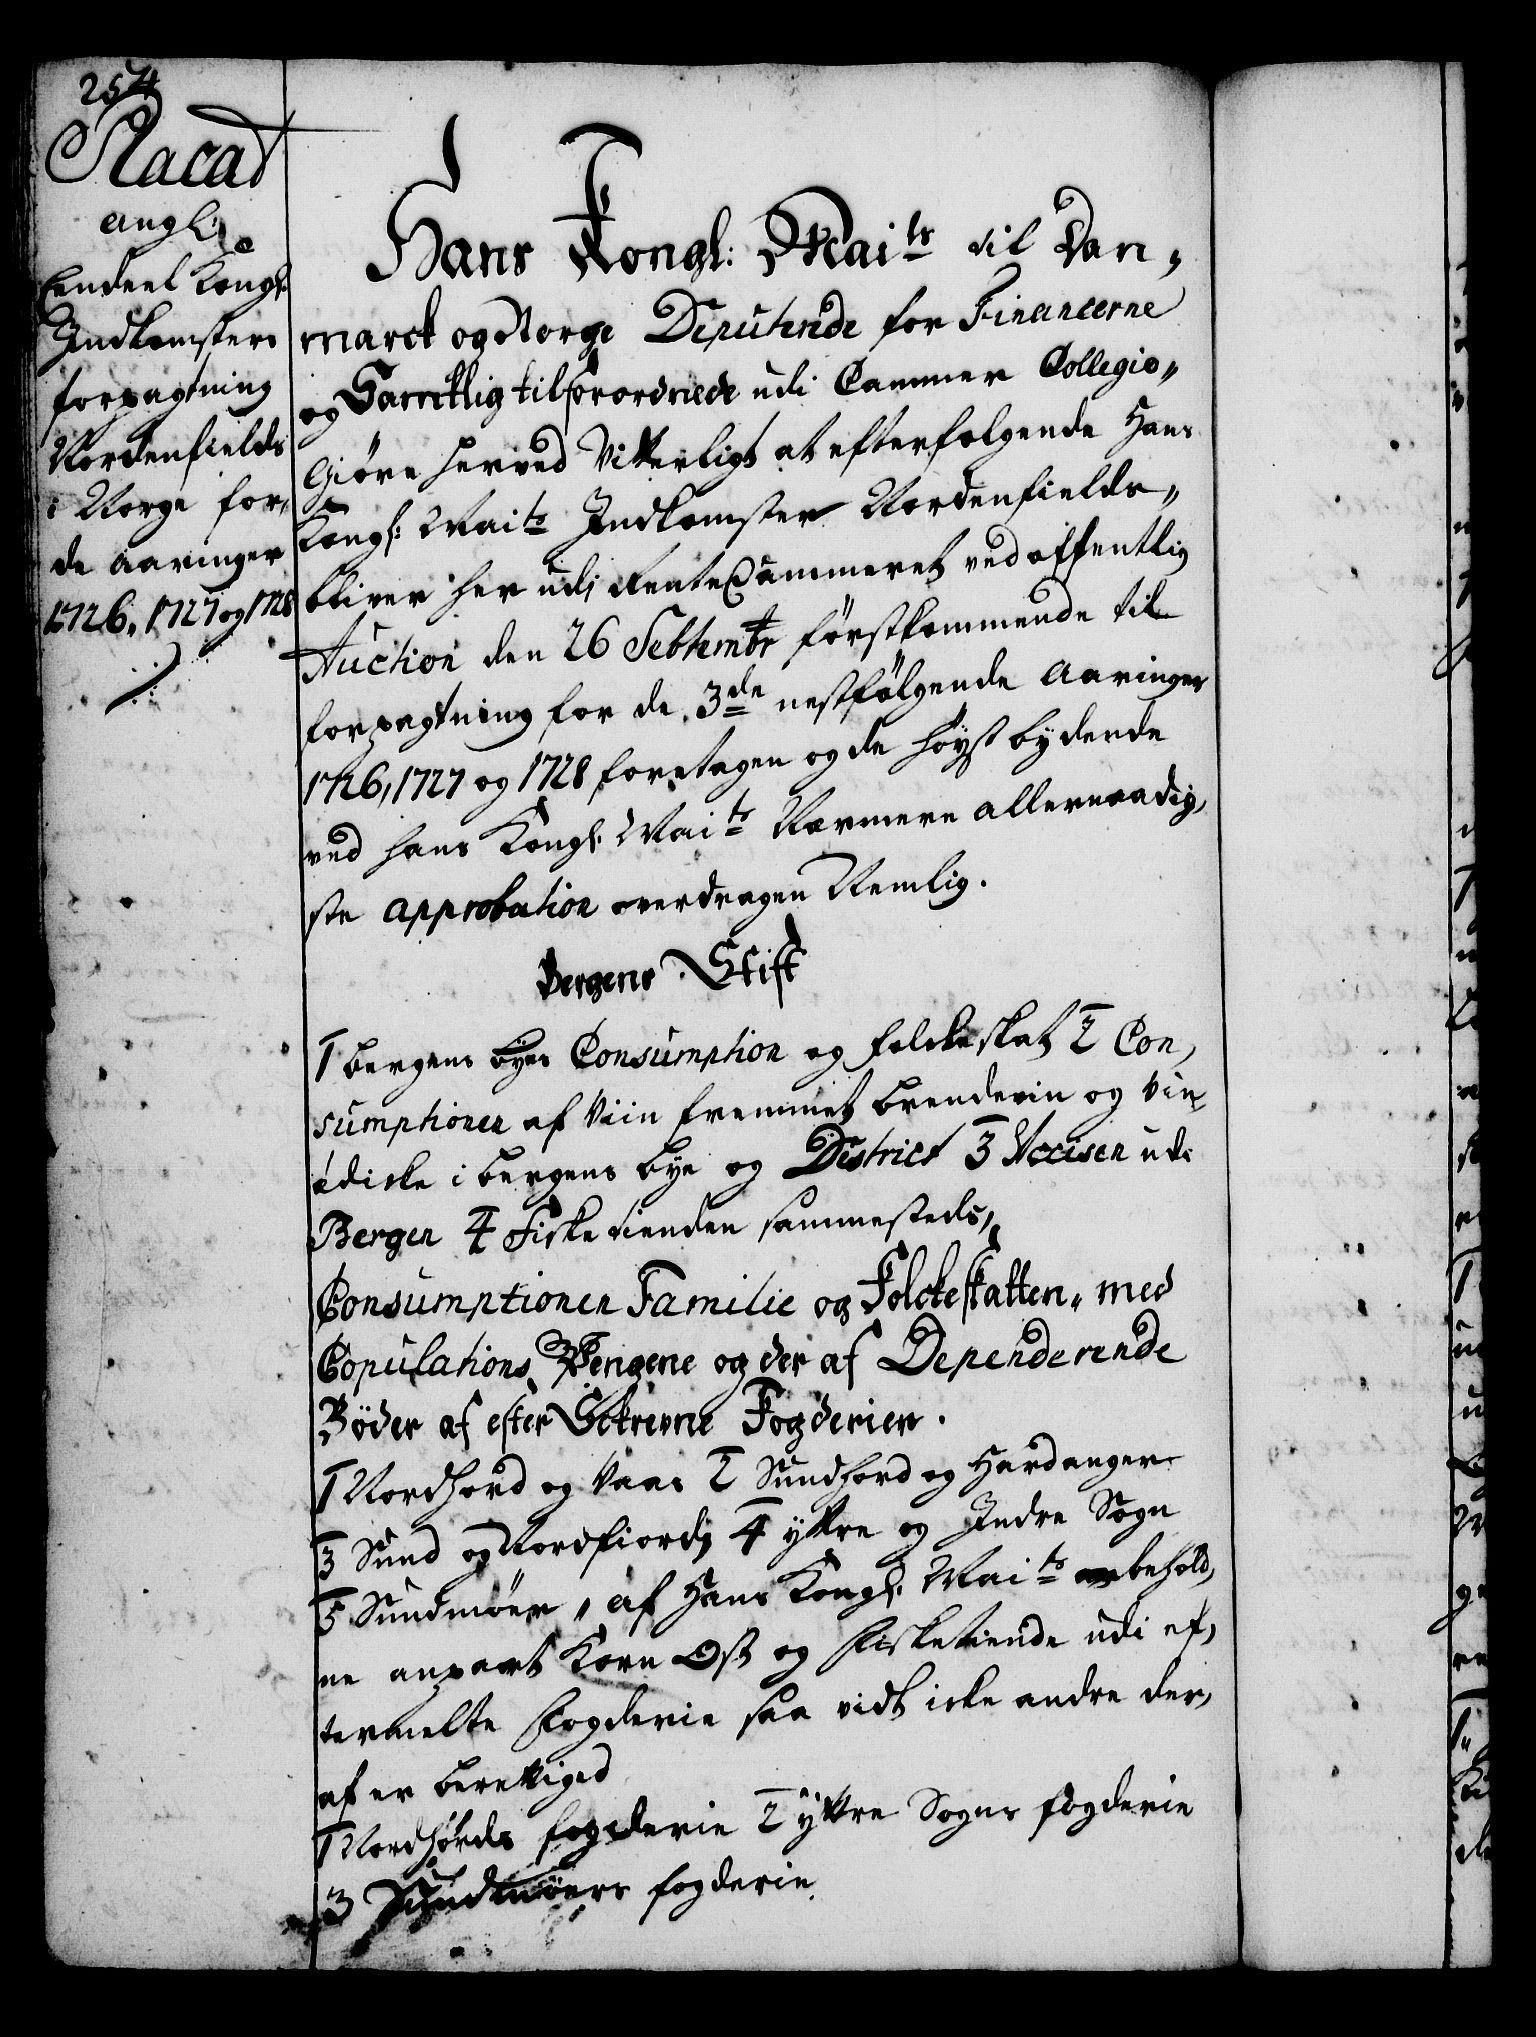 254
Placat
angl:
Eendeel Kongl:
Indkomsters
forpagtning
Nordenfields
i Norge for,
de aaringer
1726, 1727 og 1728
Hans Kongl: Maits til Dan,
marck og Norge Deputerede for Financerne
og Samtlig tilforordnede udi Cammer Collegio,,
Giöre herved Vitterligt at efterfolgende Hans
Kongl: Maits Indkomster Nordenfields,,
bliver her udj RenteCammeret ved offentlig
Auction den 26 Sebtembr förstkommende til
forpagtning for de 3de nestfölgende Aaringer
1726, 1727 og 1728 foretagen og de höyst bydende
ved hans Kongl: Maits Nærmere allernaadig,
ste approbation overdragen Nemlig.
Bergens Stift
1 bergens byes Consumption og folckeskat 2 Con,
sumptionen af Viin fremmet brendevin og Vin,
ædicke i bergens bye og District 3 Accisen udi
Bergen 4 Fiske tienden sammesteds,
Consumptionen Familie og Folckeskatten,, med
Copulations Pengene og der af Dependerende
Böder af efter Skrevne Fogderier.
1 Nordhord og Vaas 2 Sundhord og Hardanger
3 Sund og Nordfiord 4 yttre og Indre Sogn
5 Sundmöer, af Hans Kongl: Maits behold,
ne anpart Korn Ost og Fisketiende udi ef,
termelte Fogderie saa vidt icke andre der,
af er berettiged
1 Nordhords fogderie 2 yttre Sogns fogderie
3 Sundmöers fogderie